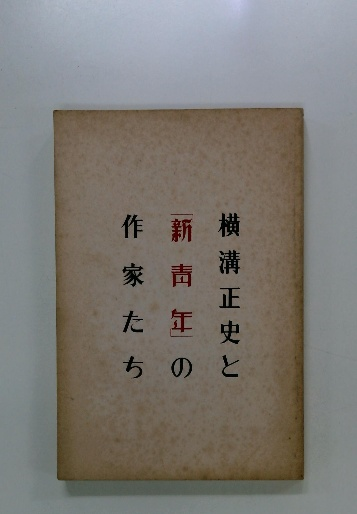 横溝正史と
「新青年」の
作家たち